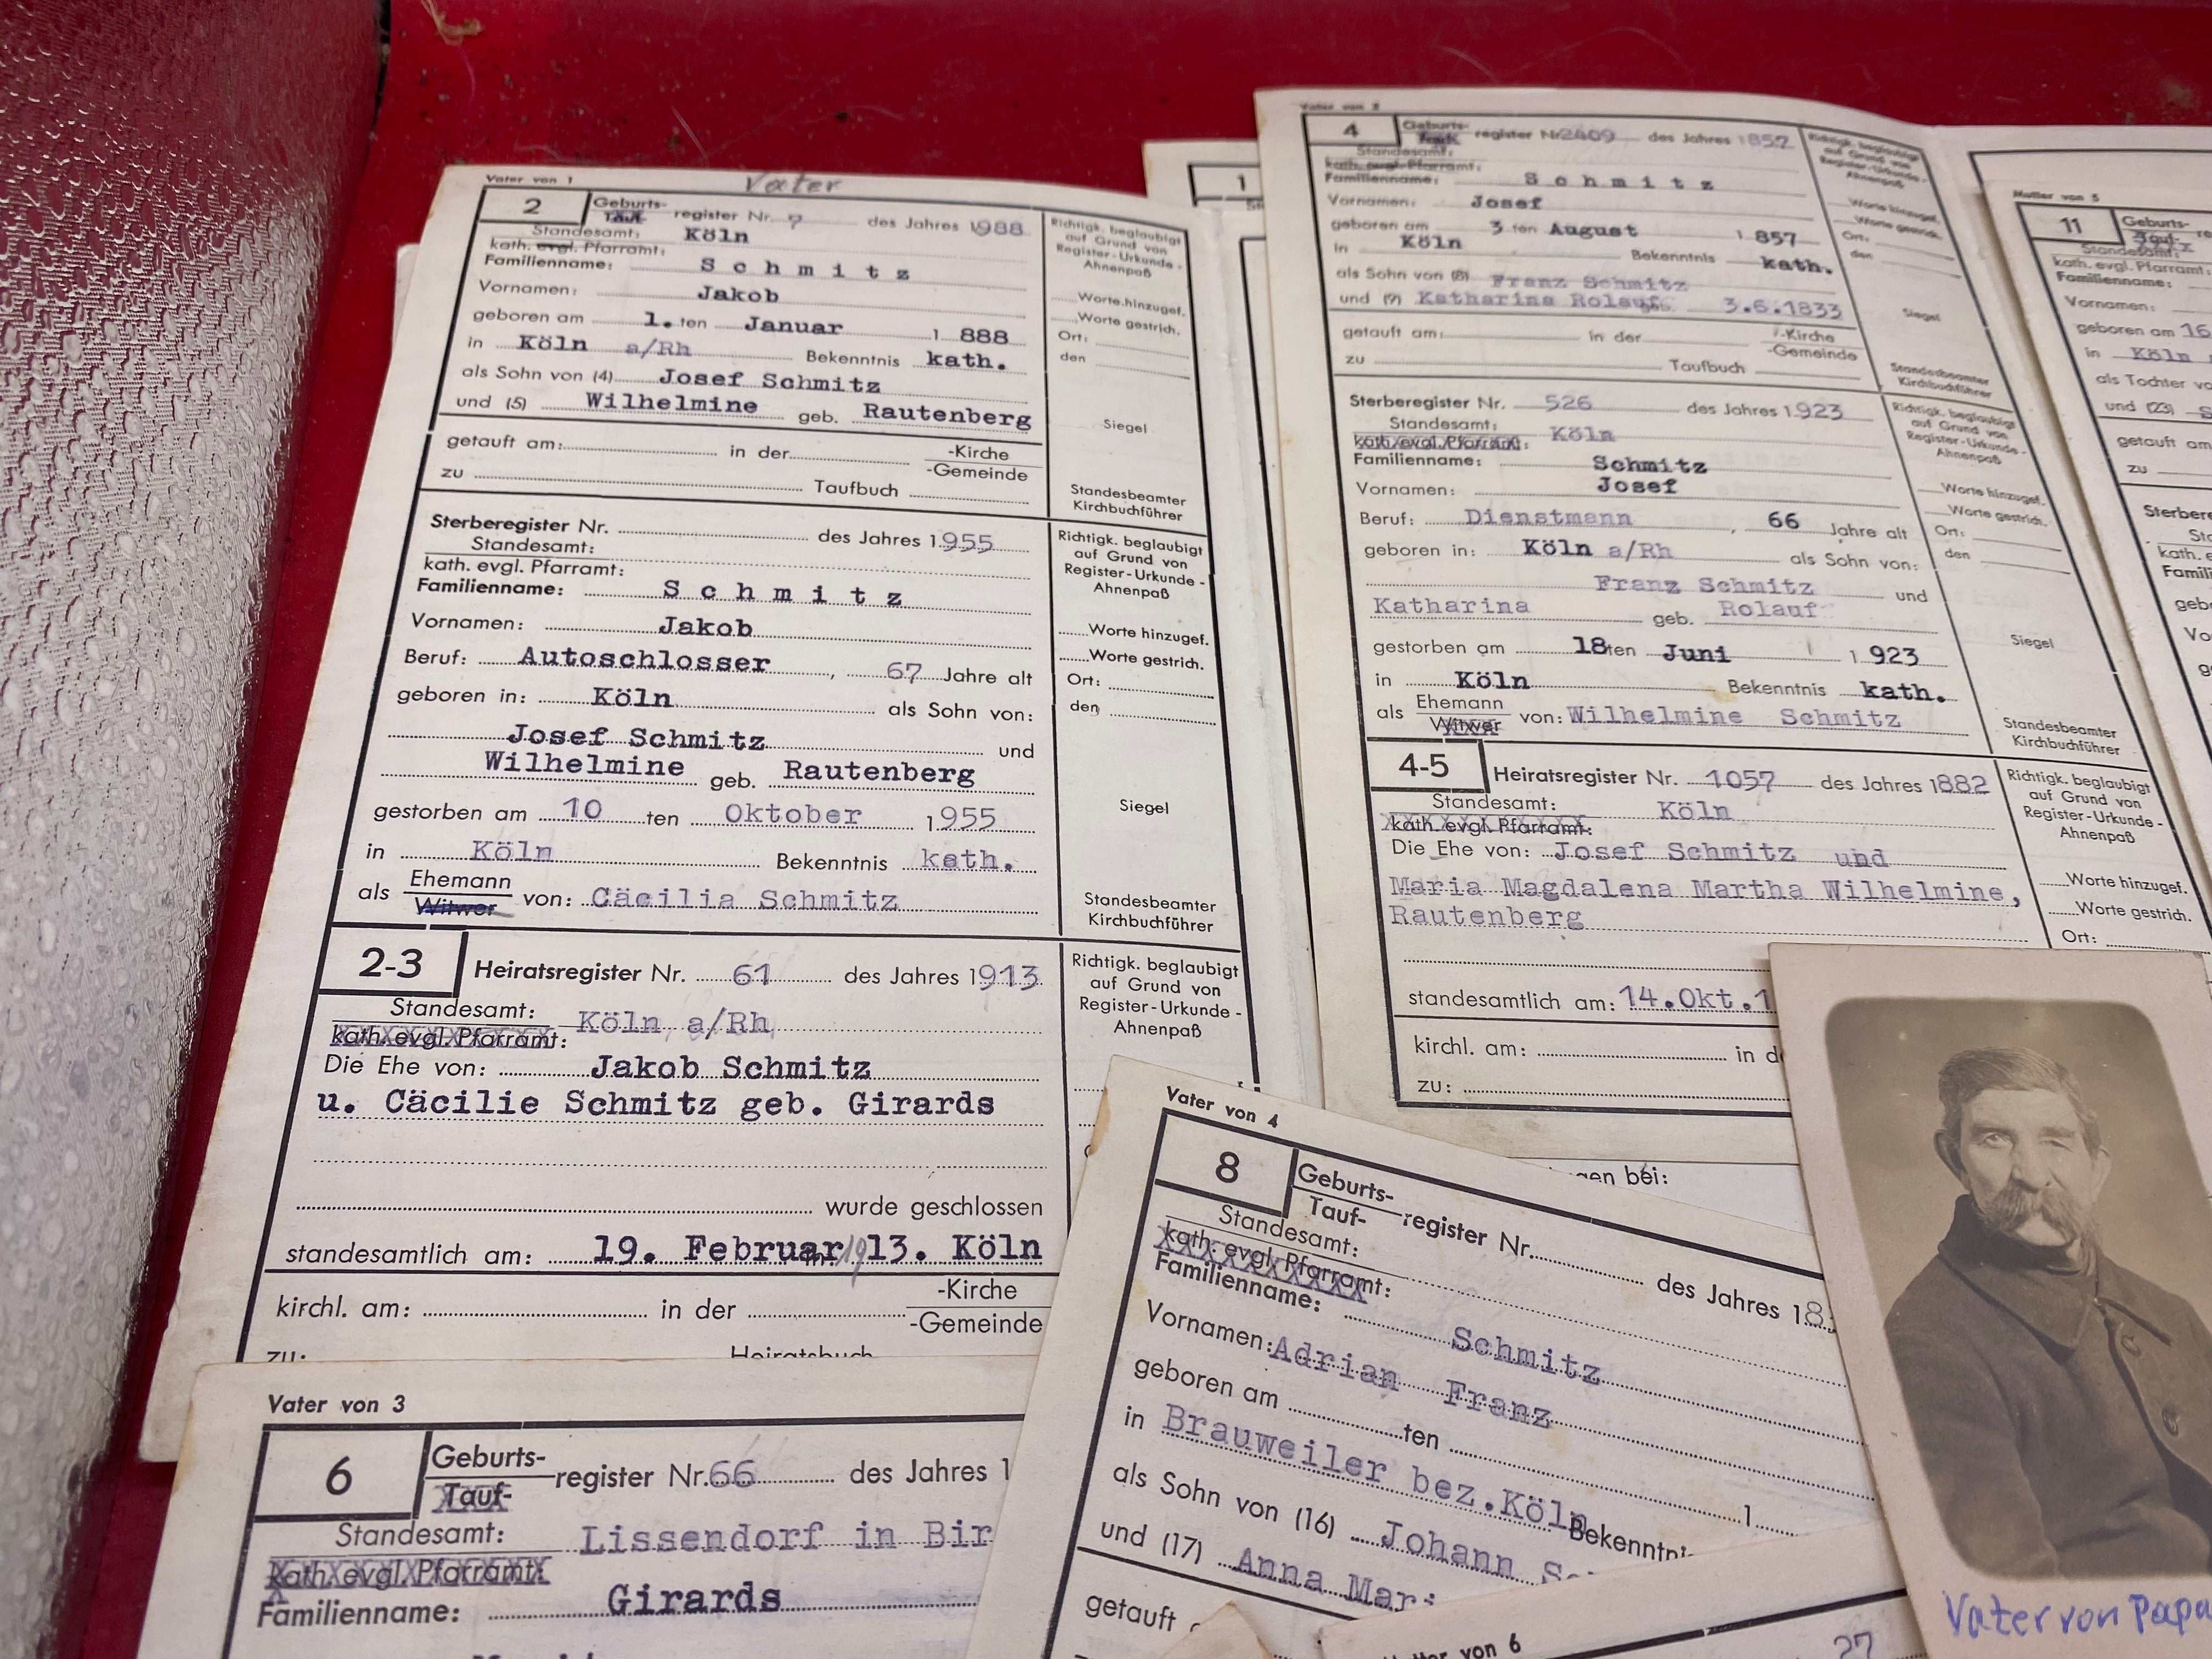 Vater von 1
Vater
2
Geburts-
Tauf-
register Nr. 7 des Jahres 1988
Standesamt: Köln
kath. evgl. Pfarramt:
Familienname: Schmitz
Vornamen: Jakob
geboren am 1. ten Januar 1888
in Köln a/Rh Bekenntnis kath.
als Sohn von (4) Josef Schmitz
und (5) Wilhelmine geb. Rautenberg
getauft am: in der -Kirche
-Gemeinde
zu Taufbuch
Richtigk. beglaubigt
auf Grund von
Register-Urkunde-
Ahnenpaß
Worte hinzugef.
Worte gestrich.
Ort:
den
Siegel
Standesbeamter
Kirchbuchführer
Sterberegister Nr. des Jahres 1955
Standesamt:
kath. evgl. Pfarramt:
Familienname: Schmitz
Vornamen: Jakob
Beruf: Autoschlosser, 67 Jahre alt
geboren in: Köln als Sohn von:
Josef Schmitz und
Wilhelmine geb. Rautenberg
gestorben am 10 ten Oktober 1955
in Köln Bekenntnis kath.
als Ehemann
Witwer
von: Cäcilia Schmitz
Richtigk. beglaubigt
auf Grund von
Register-Urkunde-
Ahnenpaß
Worte hinzugef.
Worte gestrich.
Ort:
den
Siegel
Standesbeamter
Kirchbuchführer
2-3
Heiratsregister Nr. 61 des Jahres 1913
Standesamt: Köln a/Rh
kath. evgl. Pfarramt:
Die Ehe von: Jakob Schmitz
u. Cäcilie Schmitz geb. Girards
wurde geschlossen
standesamtlich am: 19. Februar 1913. Köln
kirchl. am: in der -Kirche
-Gemeinde
zu: Heiratsbuch
Richtigk. beglaubigt
auf Grund von
Register-Urkunde-
Ahnenpaß
1
Vater von 2
4
Geburts-
Tauf-
register Nr 2409 des Jahres 1857
Standesamt:
kath. evgl. Pfarramt:
Familienname: Schmitz
Vornamen: Josef
geboren am 3 ten August 1857
in Köln Bekenntnis kath.
als Sohn von (8) Franz Schmitz
und (9) Katharina Rolauf geb. 3.6.1833
getauft am: in der -Kirche
-Gemeinde
zu Taufbuch
Richtigk. beglaubigt
auf Grund von
Register-Urkunde-
Ahnenpaß
Worte hinzugef.
Worte gestrich.
Ort:
den
Siegel
Standesbeamter
Kirchbuchführer
Sterberegister Nr. 526 des Jahres 1923
Standesamt: Köln
kath. evgl. Pfarramt:
Familienname: Schmitz
Vornamen: Josef
Beruf: Dienstmann, 66 Jahre alt
geboren in: Köln a/Rh als Sohn von:
Franz Schmitz und
Katharina geb. Rolauf
gestorben am 18ten Juni 1923
in Köln Bekenntnis kath.
als Ehemann
Witwer
von: Wilhelmine Schmitz
Richtigk. beglaubigt
auf Grund von
Register-Urkunde-
Ahnenpaß
Worte hinzugef.
Worte gestrich.
Ort:
den
Siegel
Standesbeamter
Kirchbuchführer
4-5
Heiratsregister Nr. 1057 des Jahres 1882
Standesamt: Köln
kath. evgl. Pfarramt:
Die Ehe von: Josef Schmitz und
Maria Magdalena Martha Wilhelmine,
Rautenberg
standesamtlich am: 14.Okt.1
kirchl. am: in d
zu:
Richtigk. beglaubigt
auf Grund von
Register-Urkunde-
Ahnenpaß
Worte hinzugef.
Worte gestrich.
Ort:
Mutter von 5
11
Geburts-
Tauf-
re
Standesamt:
kath. evgl. Pfarramt:
Familienname:
Vornamen:
geboren am 16
in Köln
als Tochter vo
und (23)
getauft am
zu
Sterbere
kath. e
Famili
Vo
Vater von 3
6
Geburts-
Tauf-
register Nr. 66 des Jahres 1
Standesamt: Lissendorf in Bir
kath. evgl. Pfarramt:
Familienname: Girards
en bei:
Vater von 4
8
Geburts-
Tauf-
register Nr. des Jahres 18
Standesamt:
kath. evgl. Pfarramt:
Familienname: Schmitz
Vornamen: Adrian Franz
geboren am ten 1
in Brauweiler bez.Köln Bekenntnis
als Sohn von (16) Johann Sc
und (17) Anna Mari
getauft
von 6
27
Vater von Papa